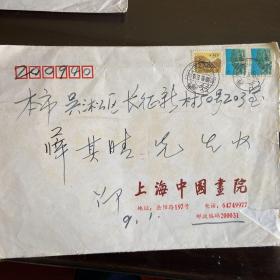 200940
本市吴淞区长征新村50号203室
其晴先生收
上海中國畫院
地址：岳阳路197号 电话：64749977
邮政编码200031
9.1.